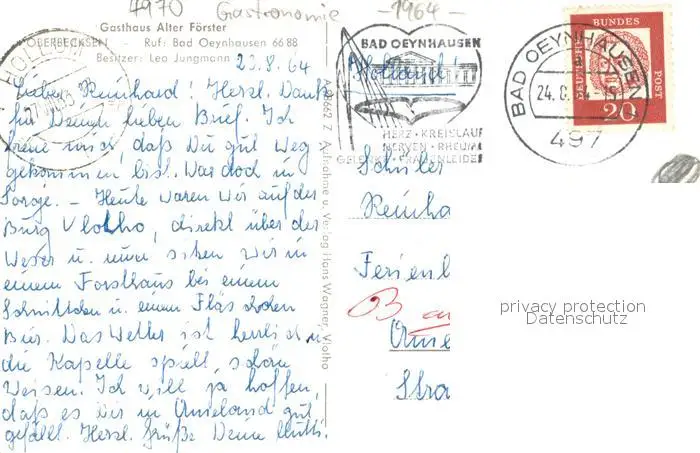 4970 Gastronomie -1964-
Gasthaus Alter Förster
OBERBECKSEN - Ruf: Bad Oeynhausen 66 88
Besitzer: Leo Jungmann
23.8.64
Lieber Reinhard! Herzl. Dank
für Deinen lieben Brief. Ich
freue mich, daß Du gut weg
gekommen bist. War doch in
Sorge. - Heute waren wir auf der
Burg Vlotho, direkt über der
Weser u. nun sitzen wir in
einem Forsthaus bei einem
Schnittchen u. einem Fläschchen
Bier. Das Wetter ist herrlich u.
die Kapelle spielt schöne
Weisen. Ich will ja hoffen,
daß es Dir in Ameland gut
gefällt. Herzl. Grüße Deine Mutti.
Z Aufnahme u. Verlag Hans Wagner, Vlotho
HOLLUM
BAD OEYNHAUSEN
HERZ · KREISLAUF
NERVEN · RHEUMA
GELENK- FRAUENLEIDEN
BAD OEYNHAUSEN
24.8.64
497
DEUTSCHE BUNDESPOST
20
Holland!
Schüler
Reinha
Ferienl
Ame
Stra
privacy protection
Datenschutz